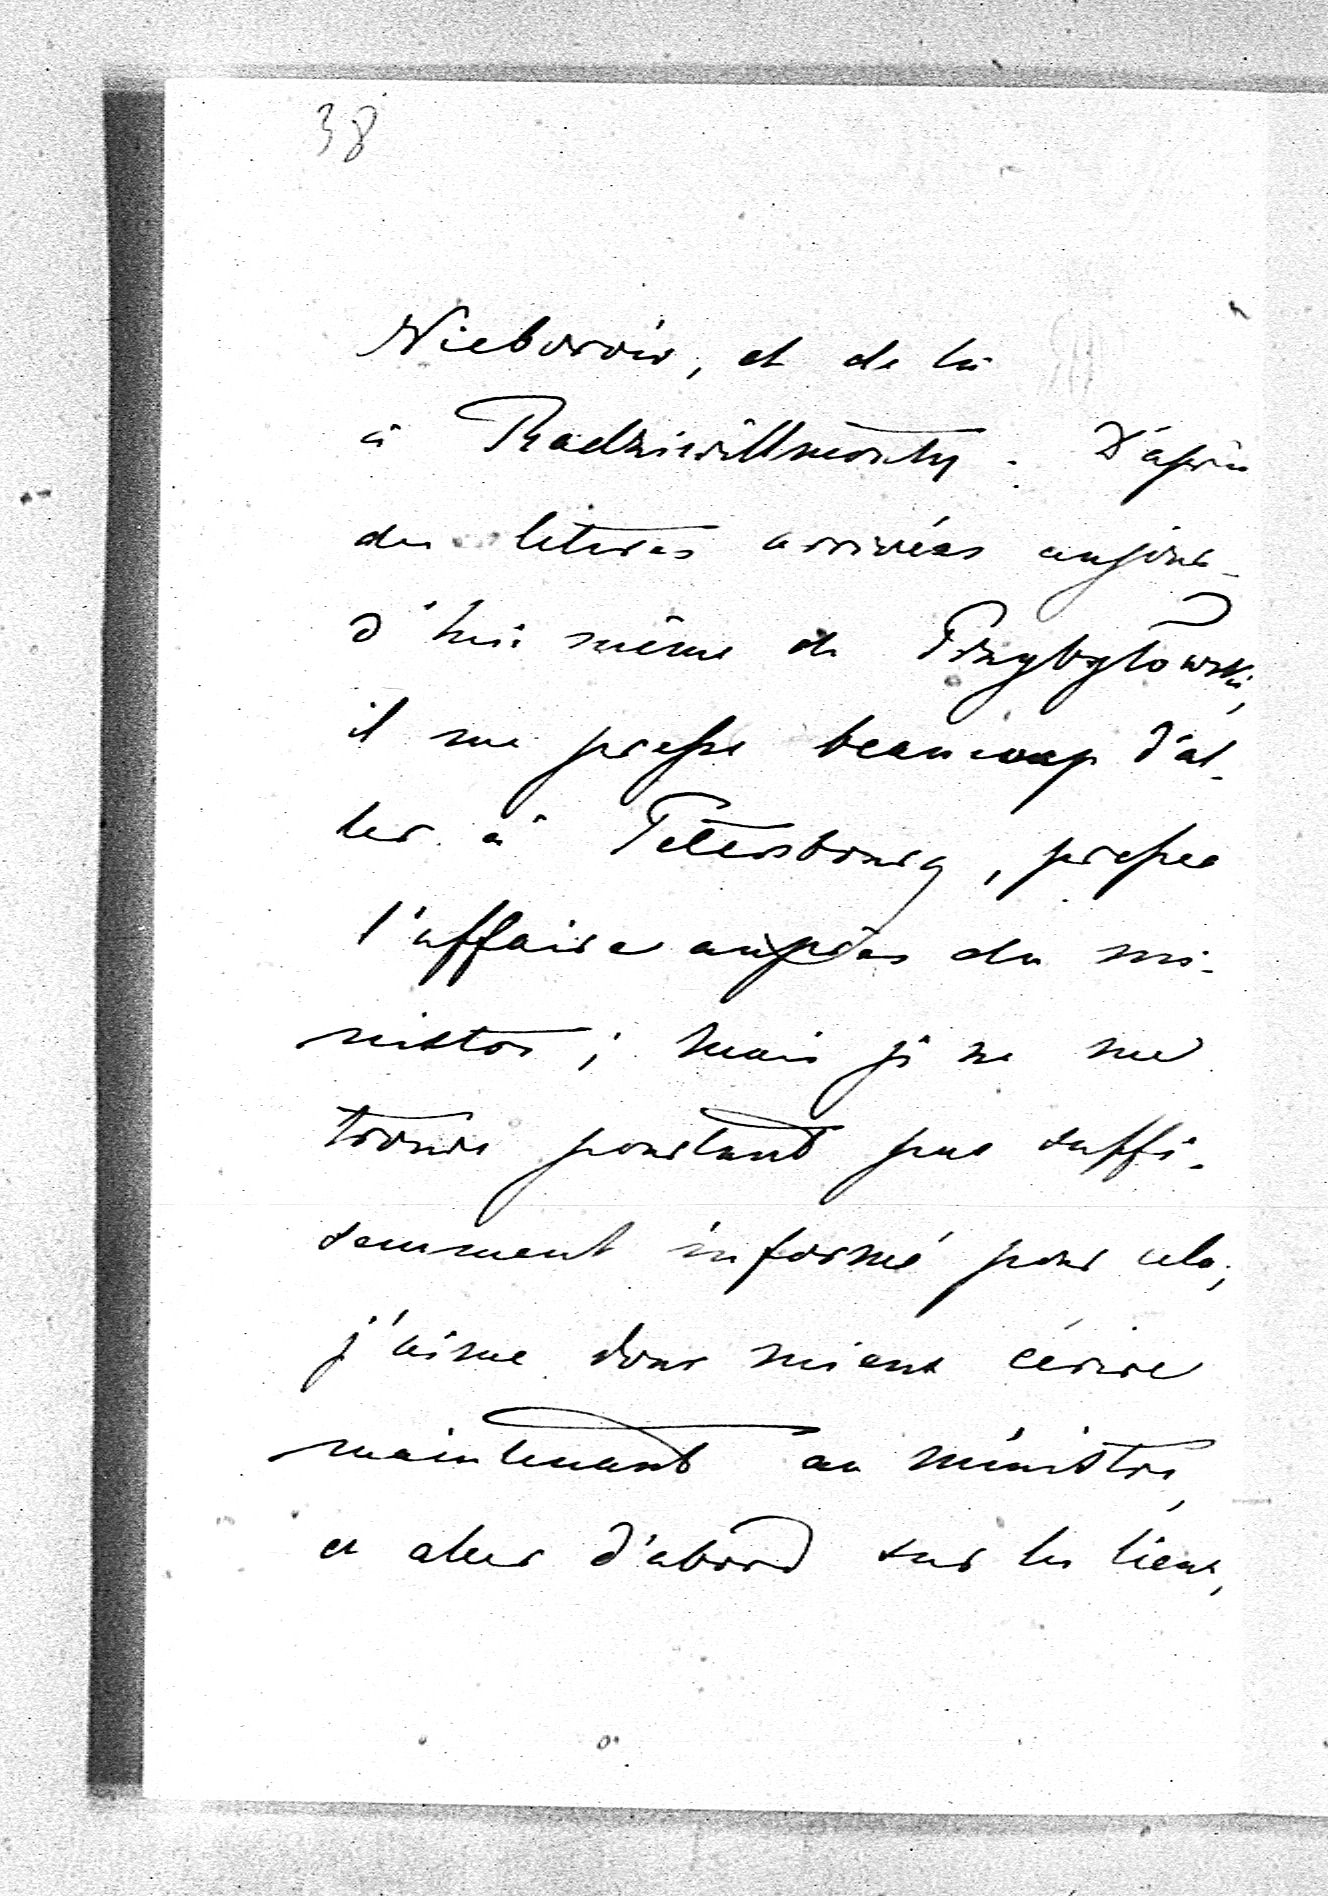 38
Nieborów, et de là
à Radziwillmonty. D'après
des lettres arrivées aujour-
d'hui même de Przybyłowski,
il me presse beaucoup d'al-
ler à Pétersbourg, presser
l'affaire auprès du mi-
nistre ; mais je ne me
trouve pourtant pas suffi-
samment informé pour cela,
j'aime donc mieux écrire
maintenant au ministre,
et aller d'abord sur les lieux,